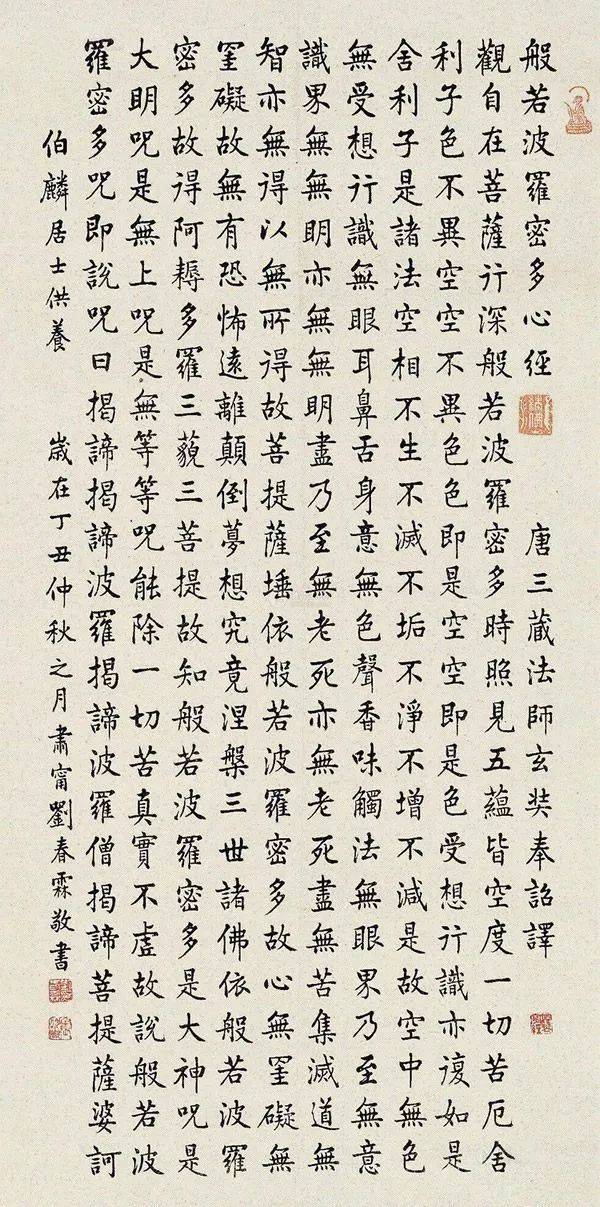 般若波羅密多心經　唐三藏法師玄奘奉詔譯
觀自在菩薩行深般若波羅密多時照見五蘊皆空度一切苦厄舍
利子色不異空空不異色色即是空空即是色受想行識亦復如是
舍利子是諸法空相不生不滅不垢不淨不增不減是故空中無色
無受想行識無眼耳鼻舌身意無色聲香味觸法無眼界乃至無意
識界無無明亦無無明盡乃至無老死亦無老死盡無苦集滅道無
智亦無得以無所得故菩提薩埵依般若波羅密多故心無罣礙無
罣礙故無有恐怖遠離顛倒夢想究竟涅槃三世諸佛依般若波羅
密多故得阿耨多羅三藐三菩提故知般若波羅密多是大神咒是
大明咒是無上咒是無等等咒能除一切苦真實不虛故說般若波
羅密多咒即說咒曰揭諦揭諦波羅揭諦波羅僧揭諦菩提薩婆訶
伯麟居士供養　歲在丁丑仲秋之月肅甯劉春霖敬書